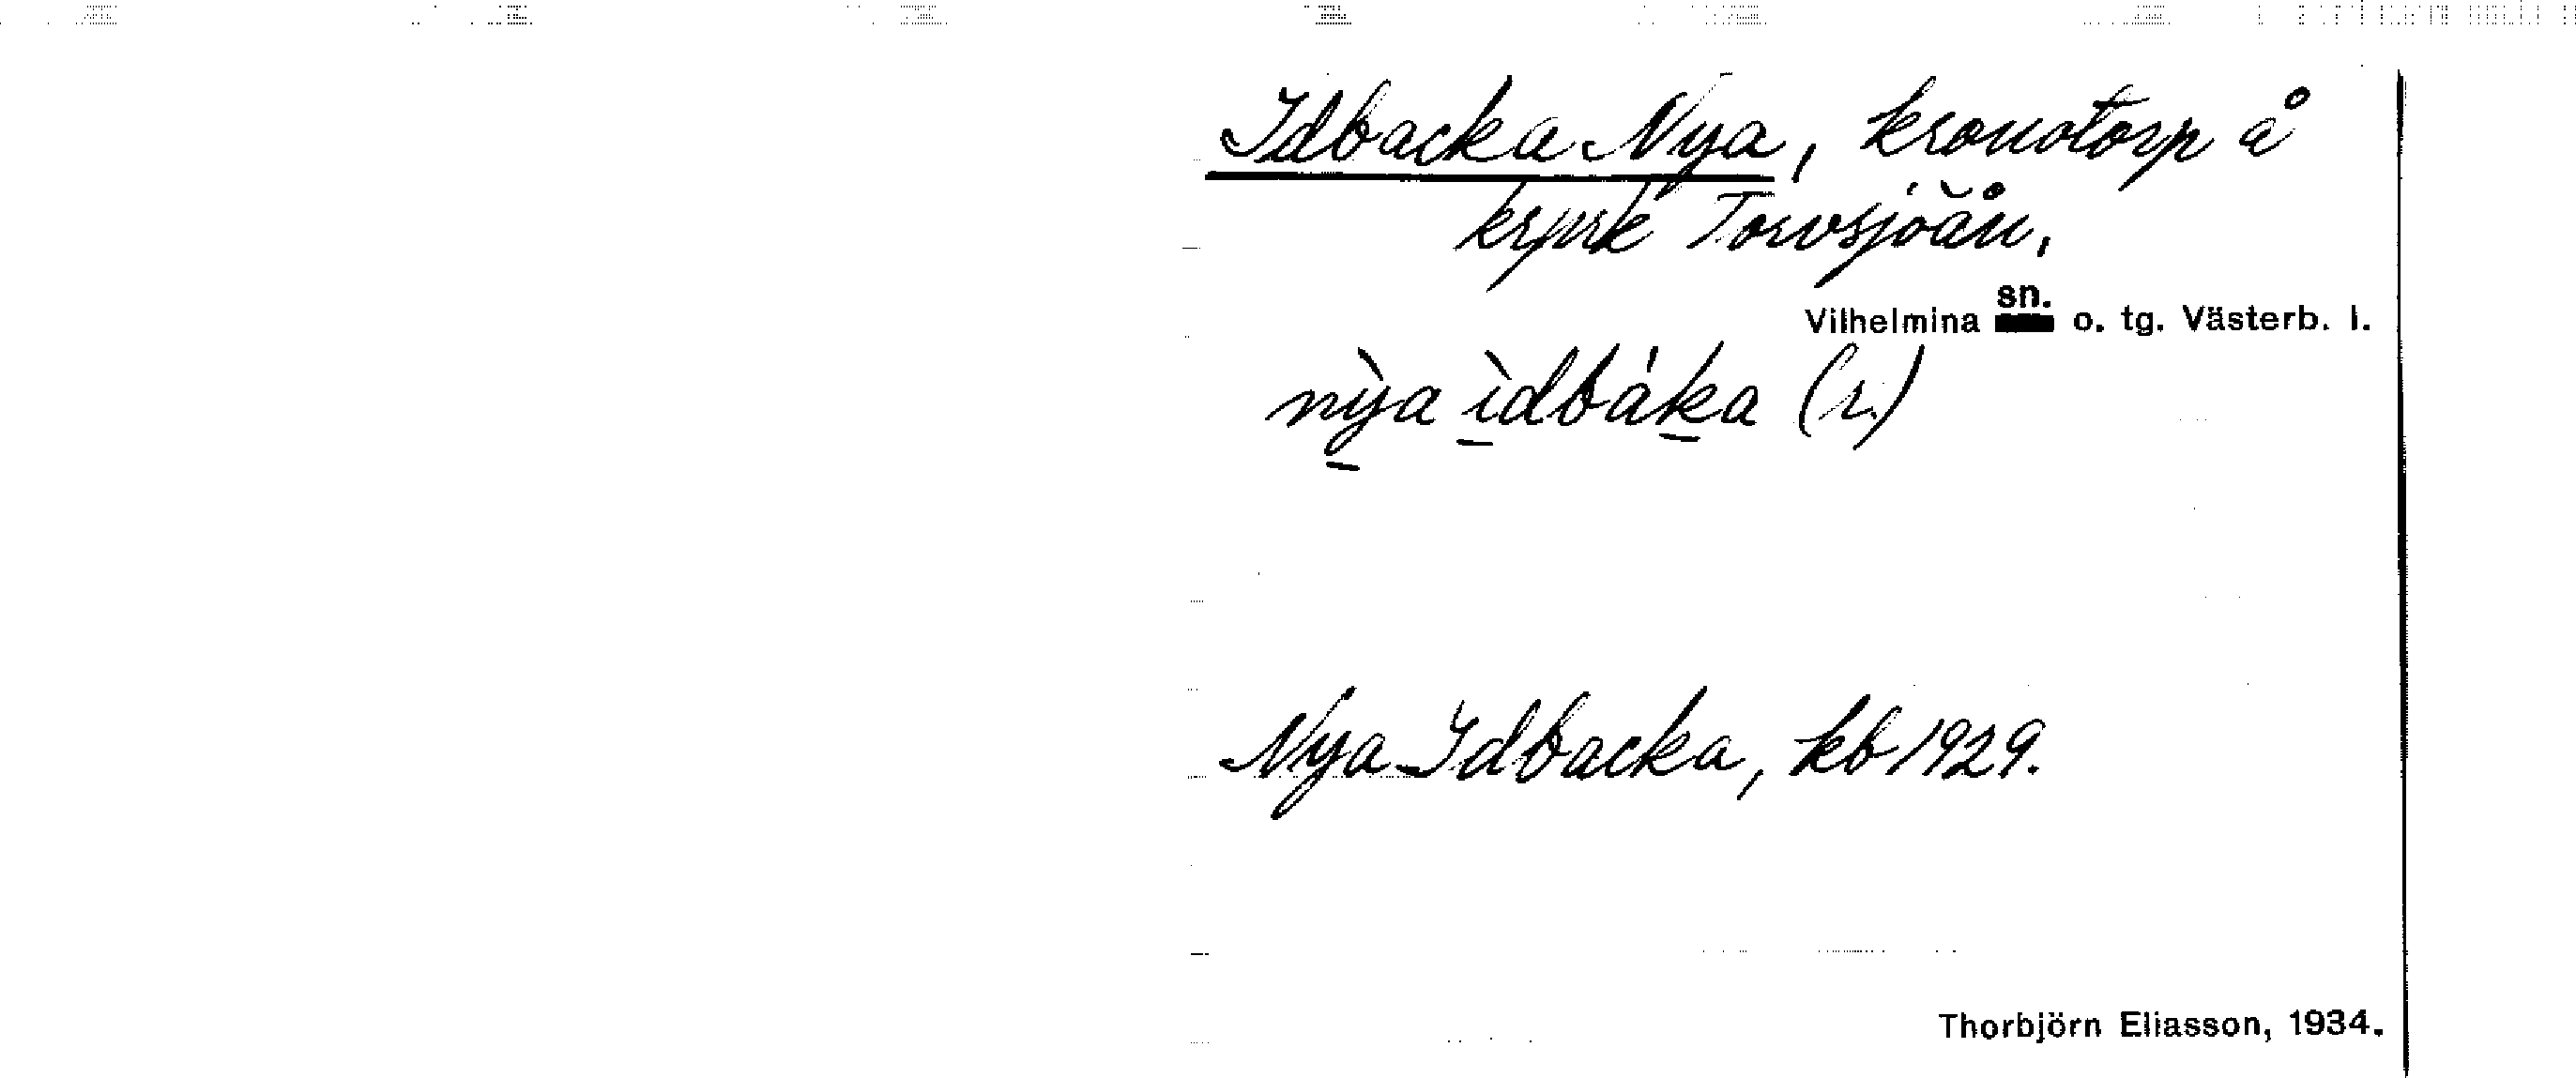 Idbacka Nya, kronotorp å
krprk Torvsjöån,
Vilhelmina sn. o. tg. Västerb. l.
nỳa ìdbáka (r.)
Nya Idbacka, kb 1929.
Thorbjörn Eliasson, 1934.